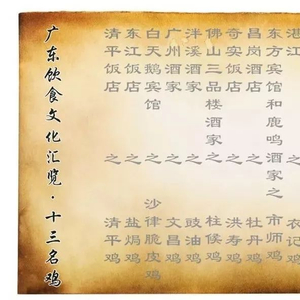 广东饮食文化汇览·十三名鸡
清平饭店之清平鸡
东江饭店之盐焗鸡
白天鹅宾馆之沙律脆皮鸡
广州酒家之文昌鸡
泮溪酒家之豉油鸡
佛山三品楼酒家之柱侯鸡
奇实饭店之洪寿鸡
昌岗酒店之牡丹鸡
东方宾馆和鹿鸣酒家之市师鸡